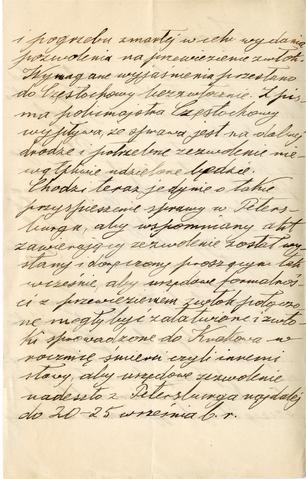 i pogrzebu zmarłej w celu wydania
pozwolenia na przewiezienie zwłok.
Wymagane wyjaśnienia przesłano
do Częstochowy bezzwłocznie. Z pi-
sma policmajstra Częstochowy
wypływa, że sprawa jest na dobrej
drodze i potrzebne zezwolenie nie
wątpliwie udzielone będzie.
Chodzi teraz jedynie o takie
przyspieszenie sprawy w Peters-
burgu, aby wspomniany akt
zawierający zezwolenie został wy-
słany i doręczony proszącym tak
wcześnie, aby urzędowe formalnoś
ci z przewiezieniem zwłok połączo
ne mogły być załatwione i zwło
ki sprowadzone do Krakowa w
rocznicę śmierci czyli innemi
słowy, aby urzędowe zezwolenie
nadeszło z Petersburga najdalej
do 20-25 września b. r.